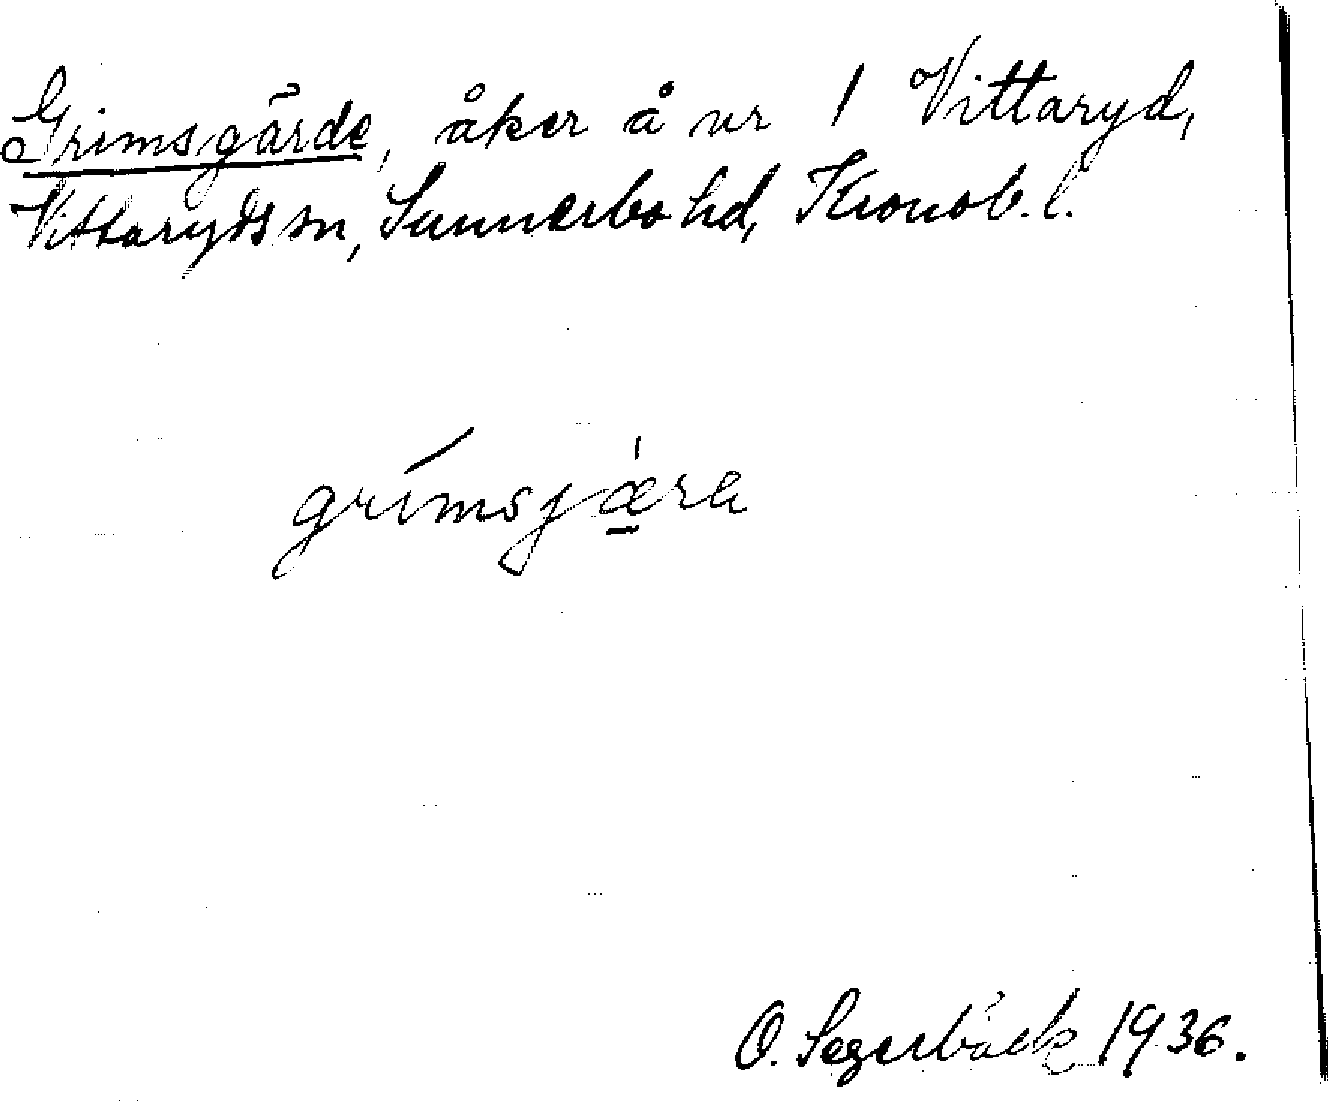 Grimsgärde, åker å nr 1 Vittaryd,
Vittaryds sn, Sunnerbo hd, Kronob. l.
grimsjæra
O. Segerbäck 1936.